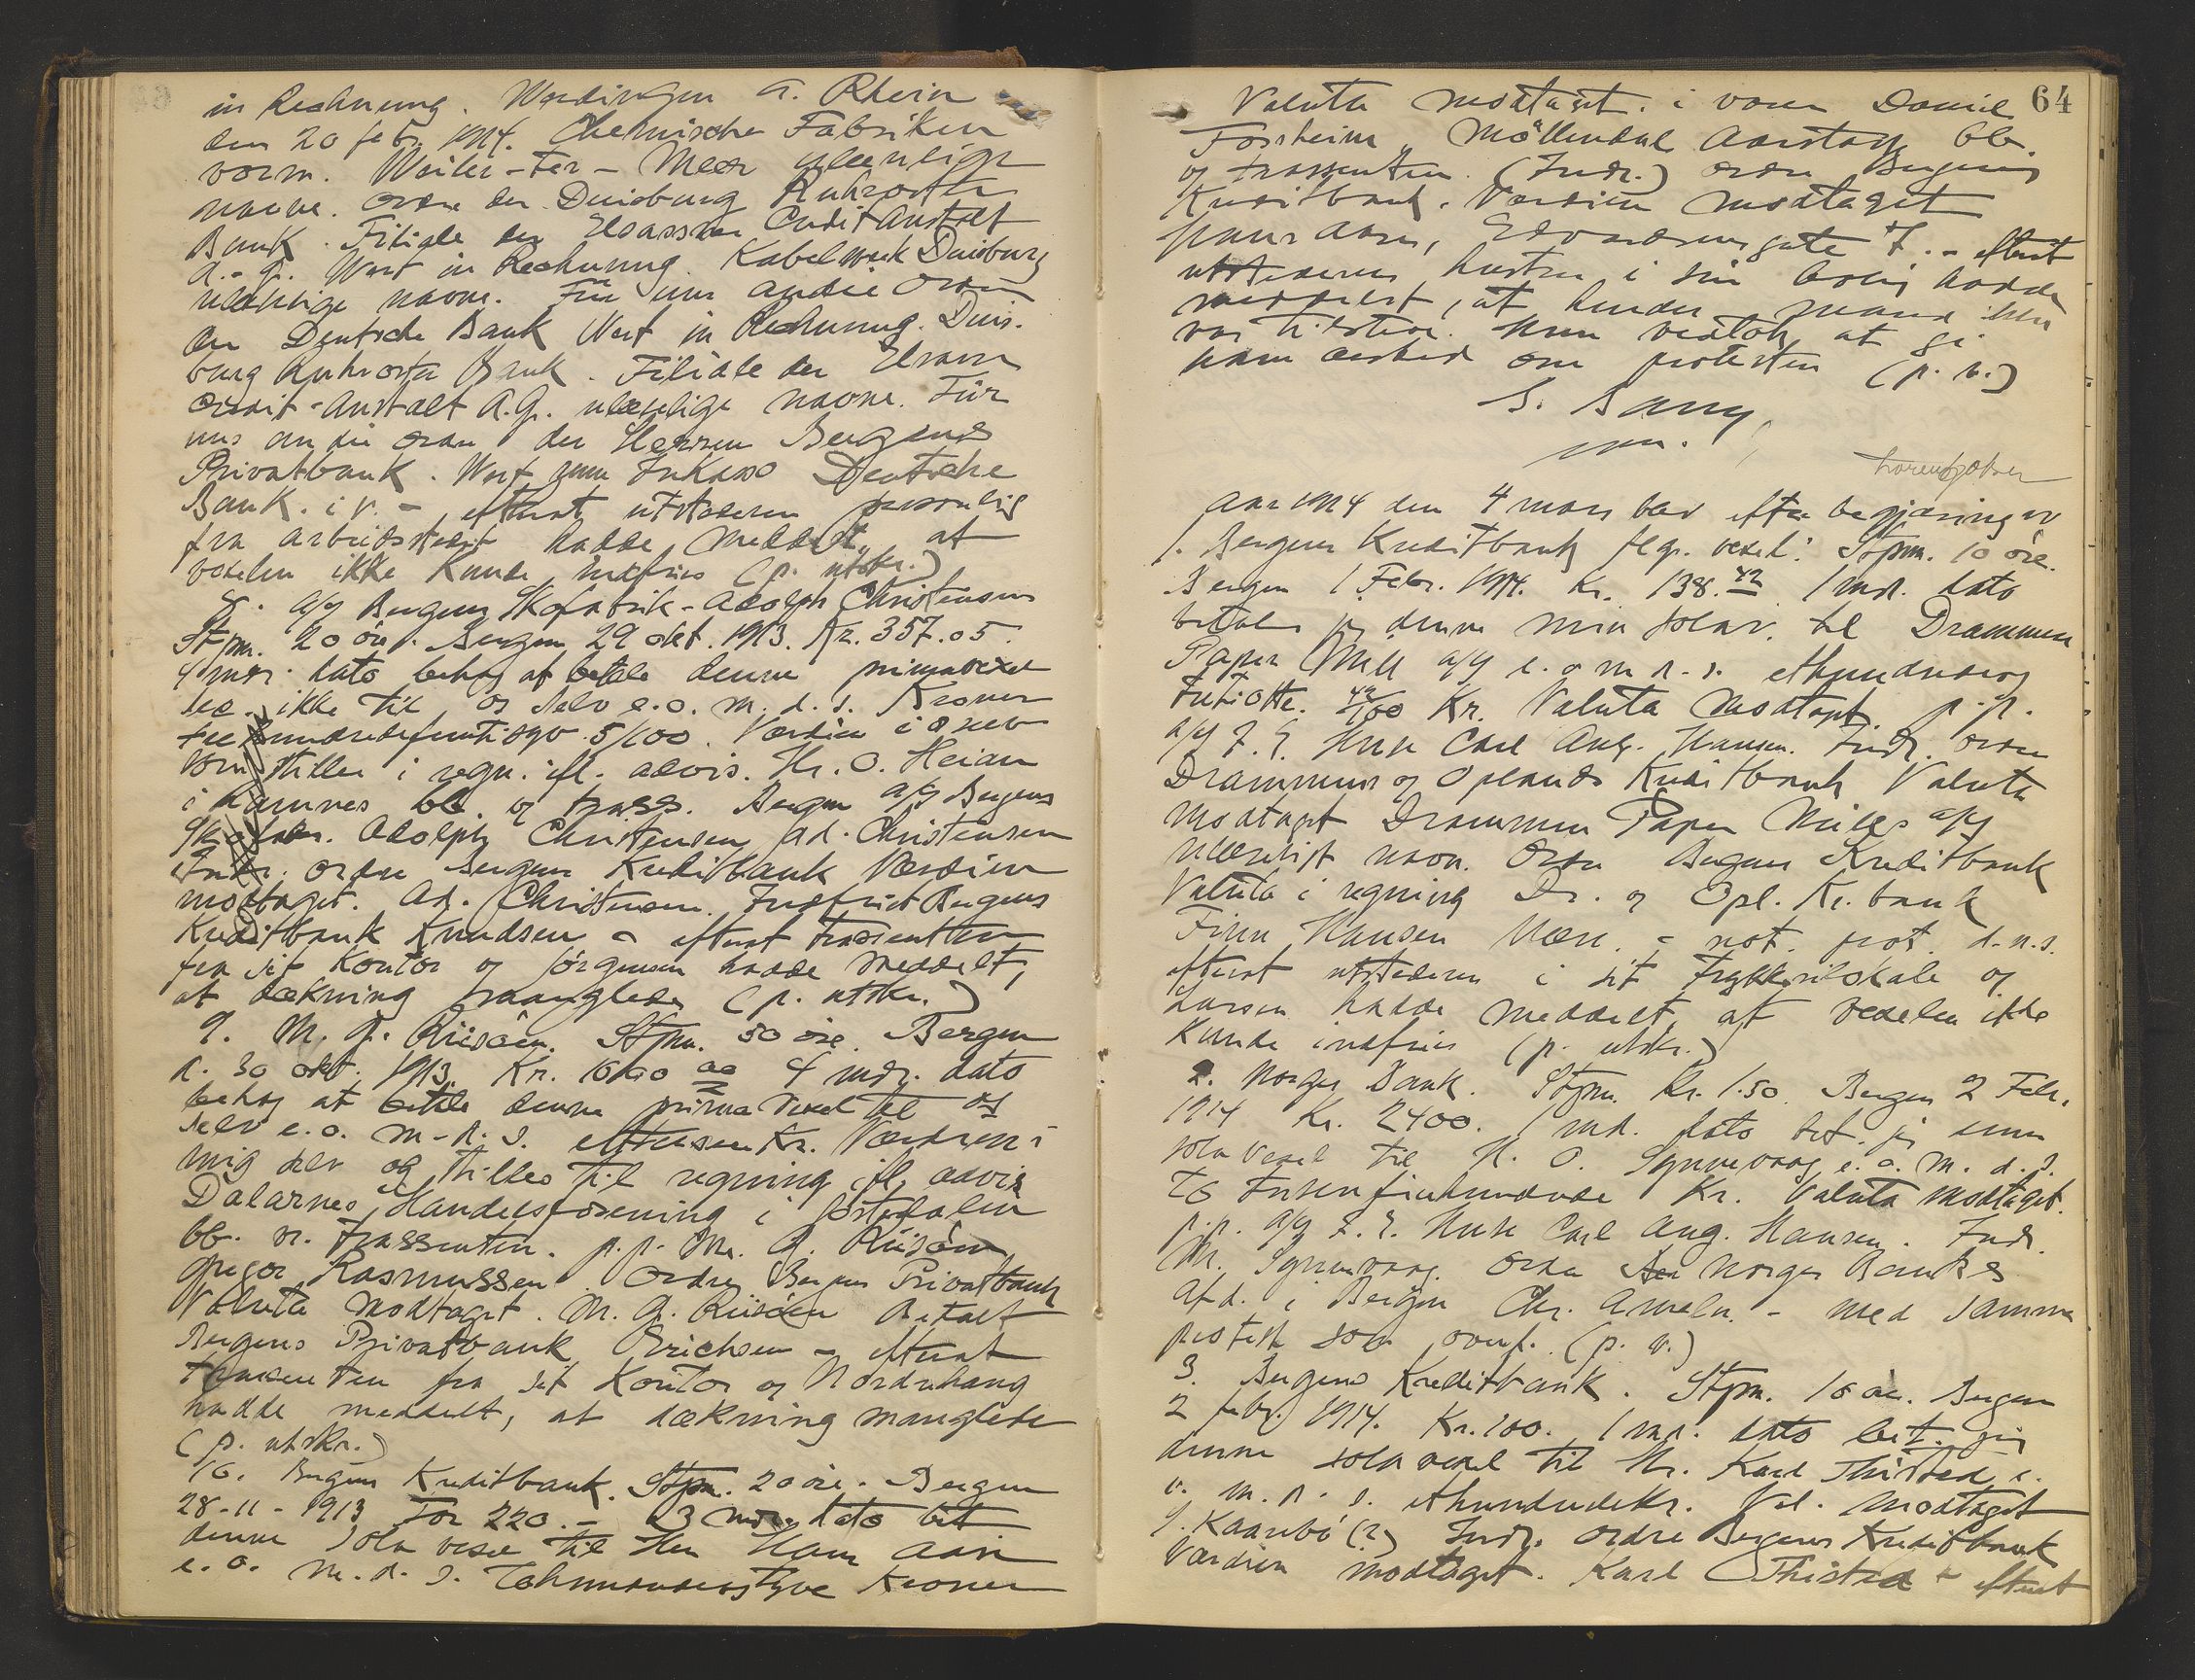 in Rechnung. Uerdingen a. Rhein
den 20 febr. 1914. Chemische Fabriken
vorm. Weiler-ter-Meer ulæselige
navne. Ordre der Duisburg Ruhrorter
Bank. Filiale der Elsasser Creditanstalt
A.-G. Wert in Rechnung. Kabelwerk Duisburg
ulæselige navne. Für uns an die Ordre
der Deutsche Bank Wert in Rechnung. Duis-
burg Ruhrorter Bank. Filiale der Elsasser
Credit-Anstalt A.G. ulæselige navne. Für
uns an die Ordre der Herren Bergens
Privatbank. Wert zum Inkasso Deutsche
Bank. i.V. - efterat utstederen personlig
fra arbeidsstedet hadde meddelt, at
vexelen ikke kunde indfries (p. utskr.)
8. a/s Bergens Skofabrik - Adolph Christensen
Stpm. 20 øre. Bergen 29 okt. 1913. Kr. 357.05.
4 mdr. dato behag at betale denne primavexel
sec. ikke til os selv e.o. m.d.s. Kroner
trehundredefemtisyv 5/100. Værdien i os selv
som stilles i regn. ifl. advis. Hr. O. Heian
i Hamnes bb. og trass. Bergen a/s Bergens
Skofabr. Adolph Christensen Ad. Christensen
Indr. ordre Bergens Kreditbank Værdien
modtaget. Ad. Christensen. Indfriet Bergens
Kreditbank Knudsen - efterat trassenten
fra sit kontor og Jørgensen hadde meddelt,
at dækning manglede (p. utskr.)
9. M. G. Riisøen. Stpm. 50 øre. Bergen
d. 30 okt. 1913. Kr. 1000 00 4 mdr. dato
behag at betale denne prima vexel til os
selv e.o. m.d.s. ettusen Kr. Værdien i
mig selv og stilles til regning ifl. advis
Dalarnes Handelsforening i Jostedalen
bb. v. trassenten. p.p. M. G. Riisøen
Gregor Rasmussen. Ordre Bergens Privatbank
Valuta modtaget. M. G. Riisøen Betalt
Bergens Privatbank Erichsen - efterat
trassenten fra sit kontor og Nordrehaug
hadde meddelt, at dækning manglede
(p. utskr.)
10. Bergens Kreditbank. Stpm. 20 øre. Bergen
28-11-1913 For 220.- 3 mdr. dato bet.
denne sola vexel til Herr Hans Aase
e.o. m.d.s. Tohundredeogtyve Kroner
64
Valuta modtaget. i vexel Daniel
Forsheim Møllendal Aarstad bb.
og trassenten. (Indr.) ordre Bergens
Kreditbank. Værdien modtaget
Hans Aase, Edvardsensgate 7. - efterat
utstederens hustru i sin bolig hadde
meddelt, at hendes mand ikke
var tilstede. Hun vedtok at gi
ham besked om protesten (p. v.)
S. Bang
Aar 1914 den 4 mars blev efter begjæring av
1. Bergens Kreditbank flgr. vexel: Stpm. 10 øre.
Bergen 1 Febr. 1914. Kr. 138.42 1 md. dato
betaler jeg denne min sola v. til Drammen
Paper Mill a/s e.o. m.d.s. ethundredeog
trtiotte. 42/100 Kr. Valuta modtaget. p.p.
a/s F. E. Huse Carl Aug. Hansen. Indr. ordre
Drammens og Oplands Kreditbank Valuta
modtaget Drammen Paper Mills a/s
ulæseligt navn. Ordre Bergens Kreditbank
Valuta i regning Dr. og Opl. Kr. bank
Finn Hansen - not. prot. d.n.s.
efterat utstederen i sit trykkerilokale og
Larsen hadde meddelt, at vexelen ikke
kunde indfries (p. utskr.)
2. Norges Bank. Stpm. Kr. 1.50. Bergen 2 Febr.
1914 Kr. 2400. 1 md. dato bet. jeg denne
sola vexel til N. O. Synnevaag e.o. m.d.s.
To tusenfirehundrede Kr. Valuta modtaget.
p.p. a/s F. E. Huse Carl Aug. Hansen. Indr.
Synnevaag. Ordre Norges Bankes
Afd. i Bergen Chr. Ameln. - med samme
protest som ovenf. (p. v.)
3. Bergens Kreditbank. Stpm. 10 øre. Bergen
2 febr. 1914. Kr. 100. 1 md. dato bet. jeg
denne sola vexel til Hr. Karl Thisted e.
o. m.d.s. ethundredeKr. Val. modtaget
Kaarbø (?) Indr. ordre Bergens Kreditbank
Værdien modtaget. Karl Thisted - efterat